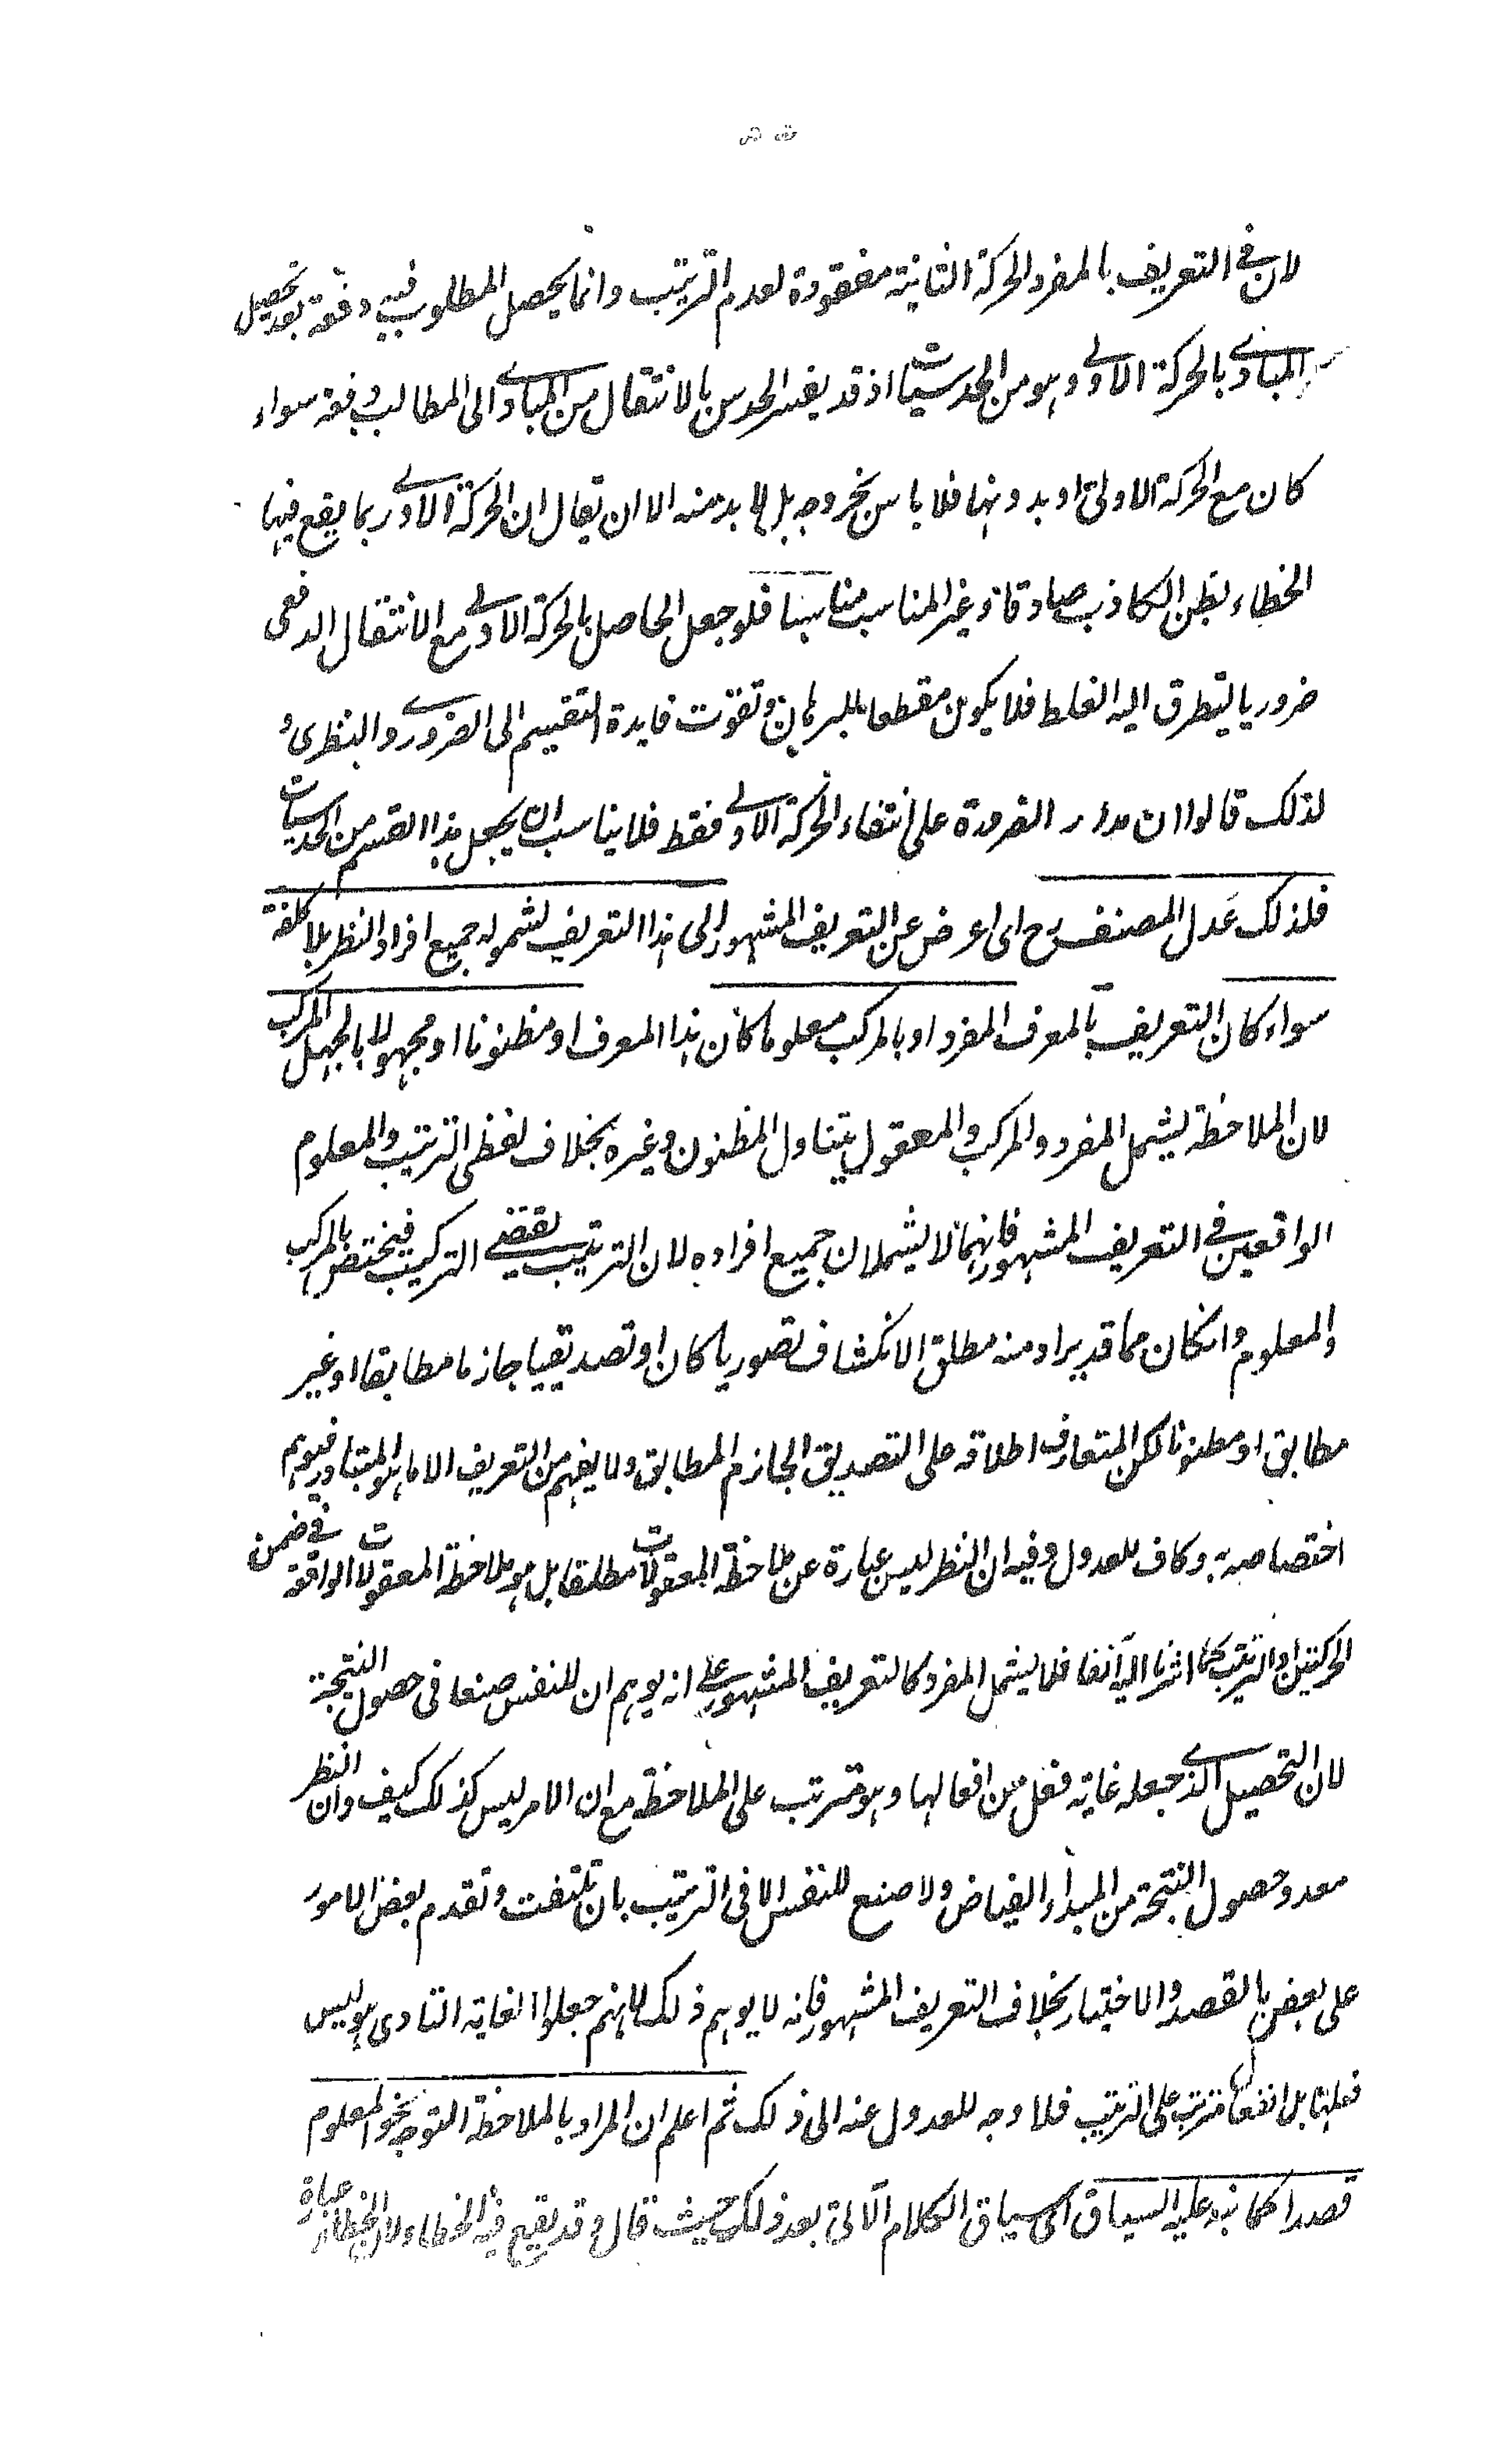 لان في التعريف بالمفرد الحركة الثانية مفقودة لعدم الترتيب وانما يحصل المطلوب فيه دفعة بعد تحصيل
المبادى بالحركة الاولى وهو من الحدسيات اذ قد يفسر الحدس بالانتقال من المبادى الى المطالب دفعة سواء
كان مع الحركة الاولى او بدونها فلا باس بخروجه بل لا بد منه الا ان يقال ان الحركة الاولى ربما يقع فيها
الخطاء بظن الكاذب صادقا وغير المناسب مناسبا فلو جعل الحاصل بالحركة الاولى مع الانتقال الدفعى
ضروريا ليتطرق اليه الغلط فلا يكون مقطعا للبرهان وتفوت فايدة التقسيم الى الضرورى والنظرى و
لذلك قالوا ان مدار الضرورة على انتفاء الحركة الاولى فقط فلا يناسب ان يجعل هذا القسم من الحدسيات
فلذلك عَدل المصنف رح اى اعرض عن التعريف المشهور الى هذا التعريف لشموله جميع افراد النظر بلا كلفة
سواء كان التعريف بالمعرف المفرد او بالمركب معلوما كان هذا المعرف او مظنونا او مجهولا بالجهل المركب
لان الملاحظة ليشمل المفرد والمركب والمعقول يتناول المظنون وغيره بخلاف لفظى الترتيب والمعلوم
الواقعين في التعريف المشهور فانهما لا يشملان جميع افراده لان الترتيب يقتضى التركيب فيختص بالمركب
والمعلوم وانكان مما قد يراد منه مطلق الانكشاف تصوريا كان او تصديقيا جازما مطابقا او غير
مطابق او مظنونا لكن المتعارف اطلاقه على التصديق الجازم المطابق ولا يفهم من التعريف الا ما هو المتبادر فيوهم
اختصاصه به وكاف للعدول وفيه ان النظر ليس عبارة عن ملاحظة المعقولات مطلقا بل هو ملاحظة المعقولات الواقعة في ضمن
الحركتين او الترتيب كما اشرنا اليه آنفا فلا يشمل المفرد كالتعريف المشهور على انه يوهم ان للنفس صنعا فى حصول النتيجة
لان التحصيل الذى جعله غاية فعل من افعالها وهو مترتب على الملاحظة مع ان الامر ليس كذلك كيف وان النظر
معد وحصول النتيجة من المبدأ الفياض ولا صنع للنفس الا فى الترتيب بان تلتفت وتقدم بعض الامور
على بعض بالقصد والاختيار بخلاف التعريف المشهور فانه لا يوهم ذلك لانهم جعلوا الغاية التادى هو ليس
فعلها بل انفعالها مترتب على الترتيب فلا وجه للعدول عنه الى ذلك ثم اعلم ان المراد بالملاحظة التوجه نحو المعلوم
قصدا كما نبه عليه السياق اى سياق الكلام الآتى بعد ذلك حيث قال وقد يقع فيه الخطاء لان الخطاء عبارة